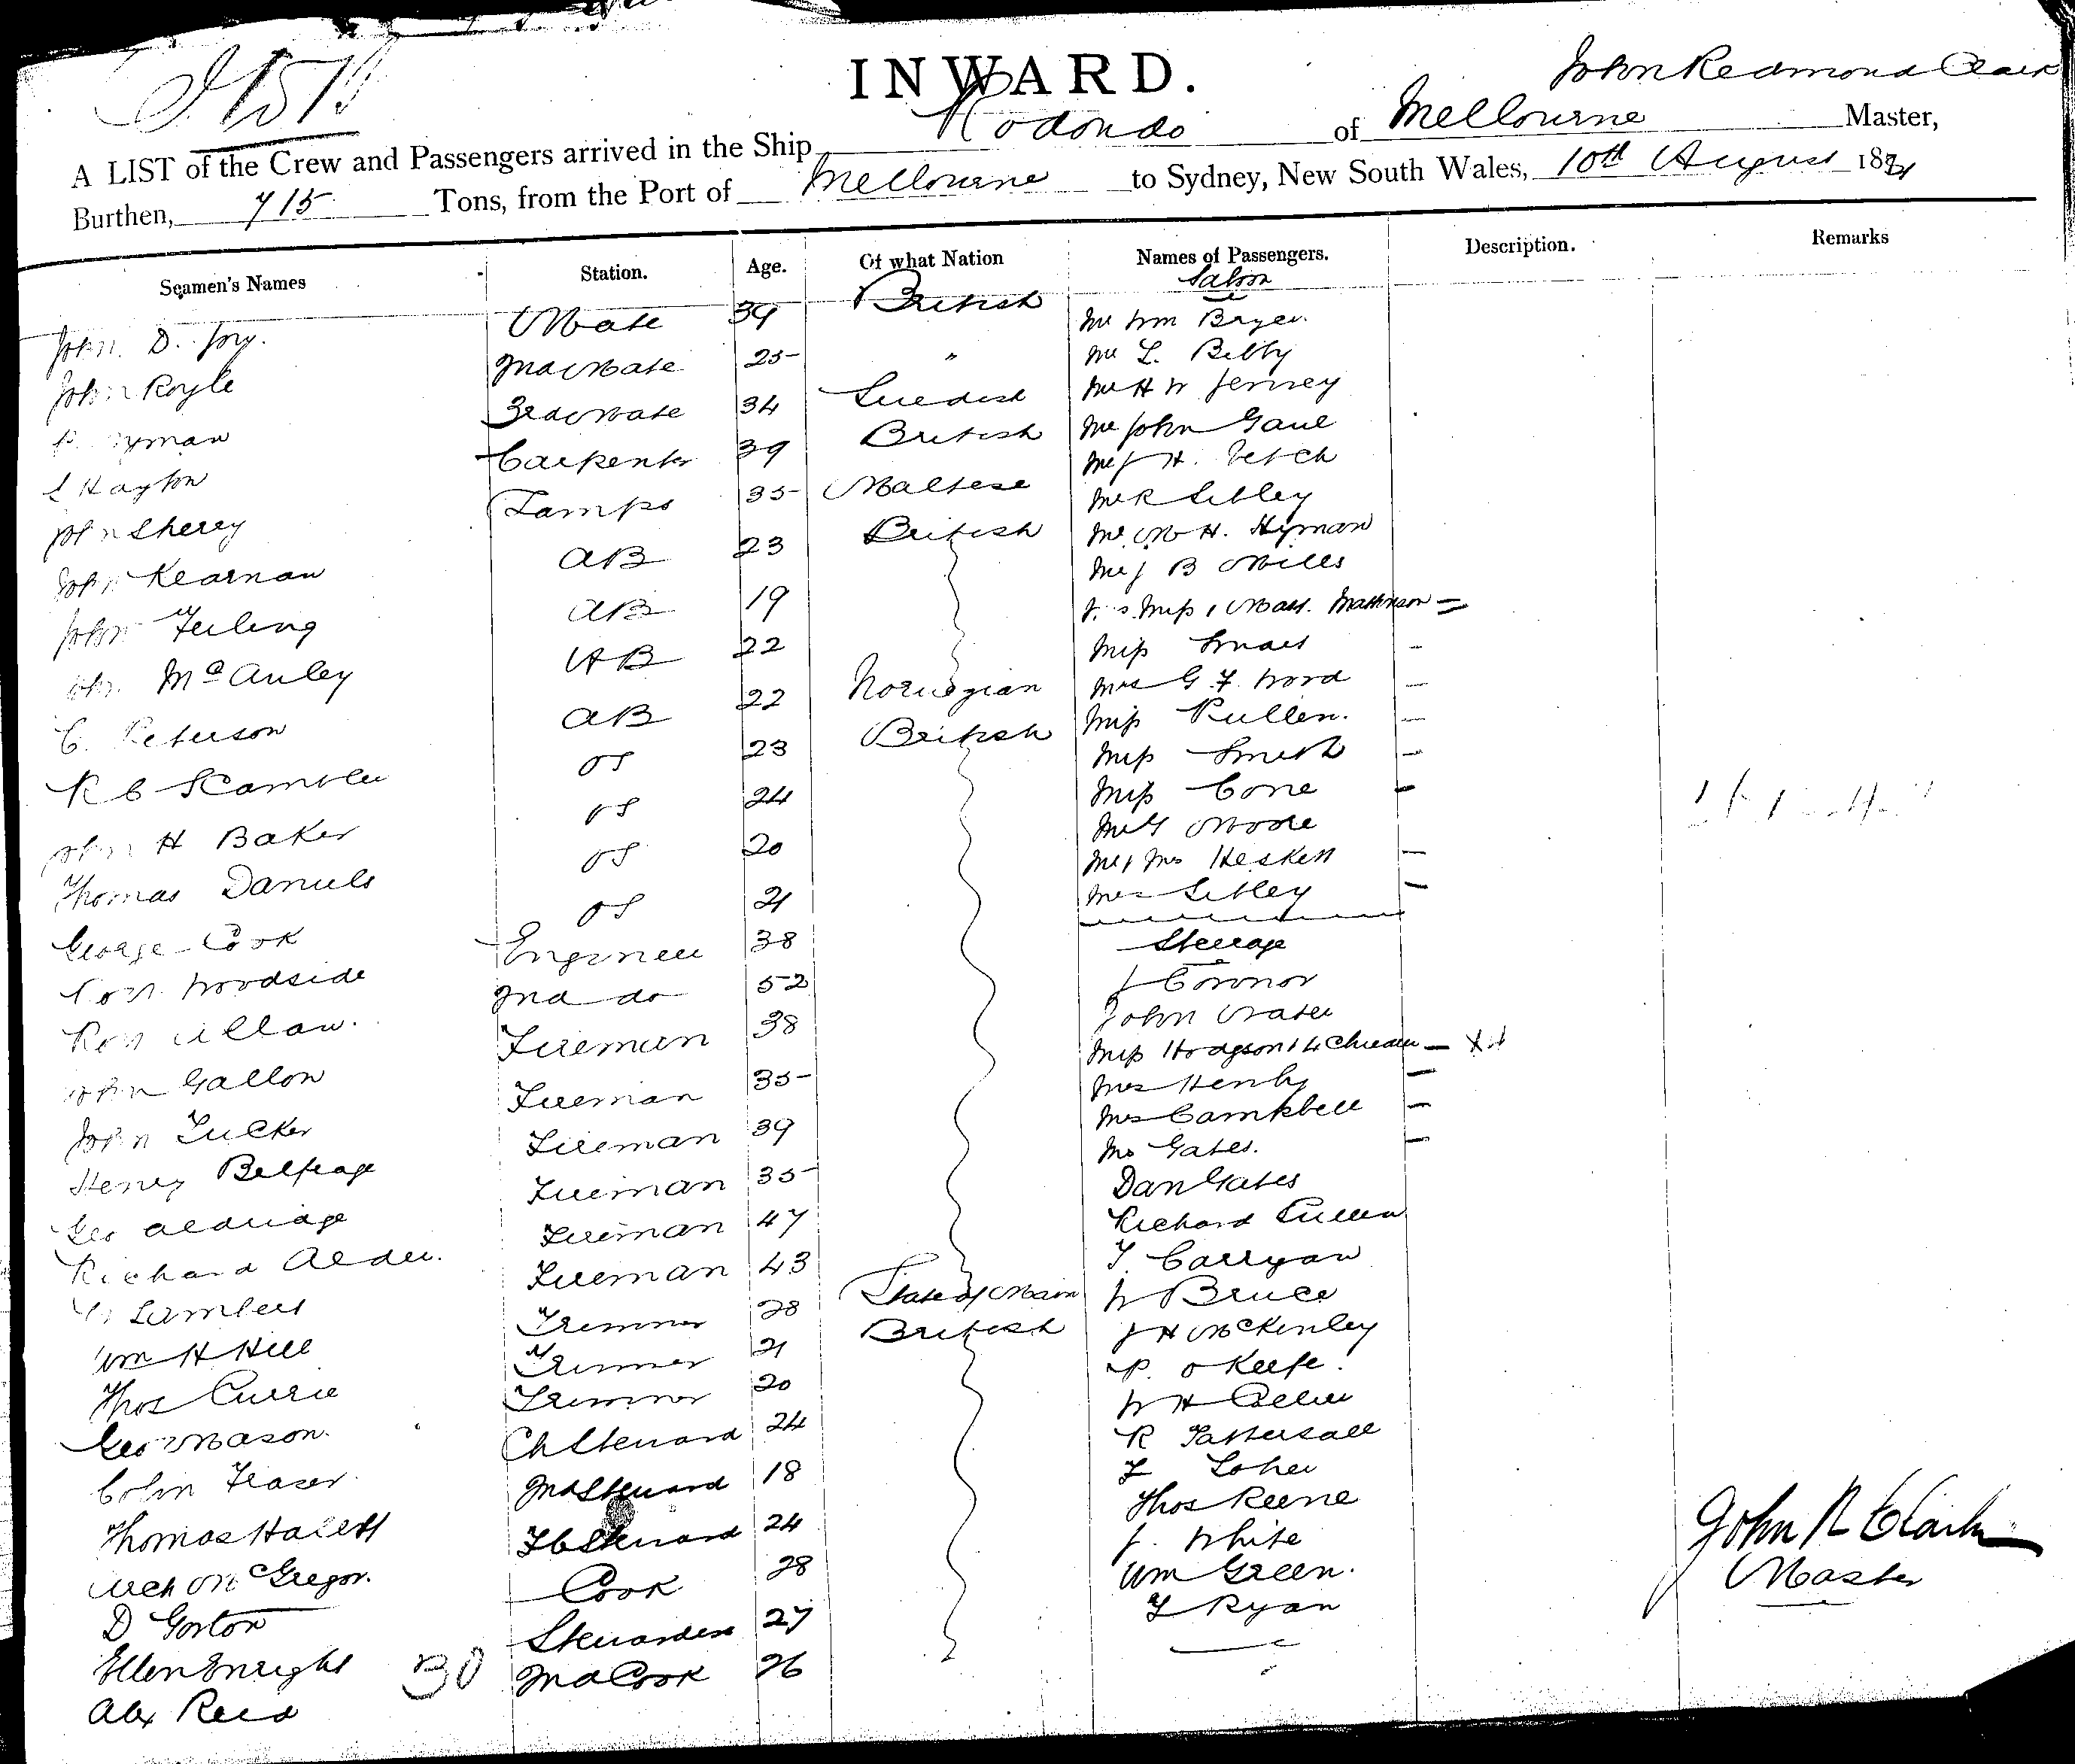 INWARD.
John Redmond Clark
A LIST of the Crew and Passengers arrived in the Ship Rodondo of Melbourne Master,
Burthen, 715 Tons, from the Port of Melbourne to Sydney, New South Wales, 10th August 18
Seamen's Names Station. Age. Of what Nation Names of Passengers. Description. Remarks
Saloon
John D. Joy. Mate 39 British Mr Wm Bryer.
John Royle 2nd Mate 25 " Mr L. Bibby
3rd Mate 34 Swedish Mr H W Jenney
Hayton Carpenter 39 British Mr John Gaul
John Sherry Lamps 35 Maltese Mr J H. Vetch
John Kearnan AB 23 British Mr R Sibley
John Teeling AB 19 Mr M H. Hyman
John McAuley AB 22 Mr J B Mills
C. Peterson AB 22 Norwegian Miss 1 Mast. Mathinson
R C Scambler OS 23 British Miss
John H Baker OS 24 Mrs G. F. Word
Thomas Daniels OS 20 Miss Pullen.
George Cook OS 21 Miss Smith
Robt. Woodside Engineer 38 Miss Cone
Robt Allan. 2nd do 52 Mr G Moore
John Gallon Fireman 38 Mr & Mrs Heskett
John Tucker Fireman 35 Mrs Sibley
Henry Belfrage Fireman 39 Steerage
Geo Aldridge Fireman 35 J Connor
Richard Alder. Fireman 47 John
Lambert Fireman 43 Miss Hodgson & 4 Children
Wm H Hill Trimmer 28 State of Main Mrs Henly
Thos Currie Trimmer 21 British Mrs Campbell
Geo Mason. Trimmer 20 Mrs Gates.
Colin Fraser. Ch Steward 24 Dan Gates
Thomas Halett 2nd Steward 18 Richard Pullen
Arch McGregor. F C Steward 24 T. Carryan
D Gorton Cook 28 W Bruce
Ellen Enright Stewardess 27 J H McKinley
Alex Reid 2nd Cook 26 P. O Keefe.
30
W H
R Tattersall
Thos Keene
J. White
Wm Green.
T Ryan
John R Clark
Master